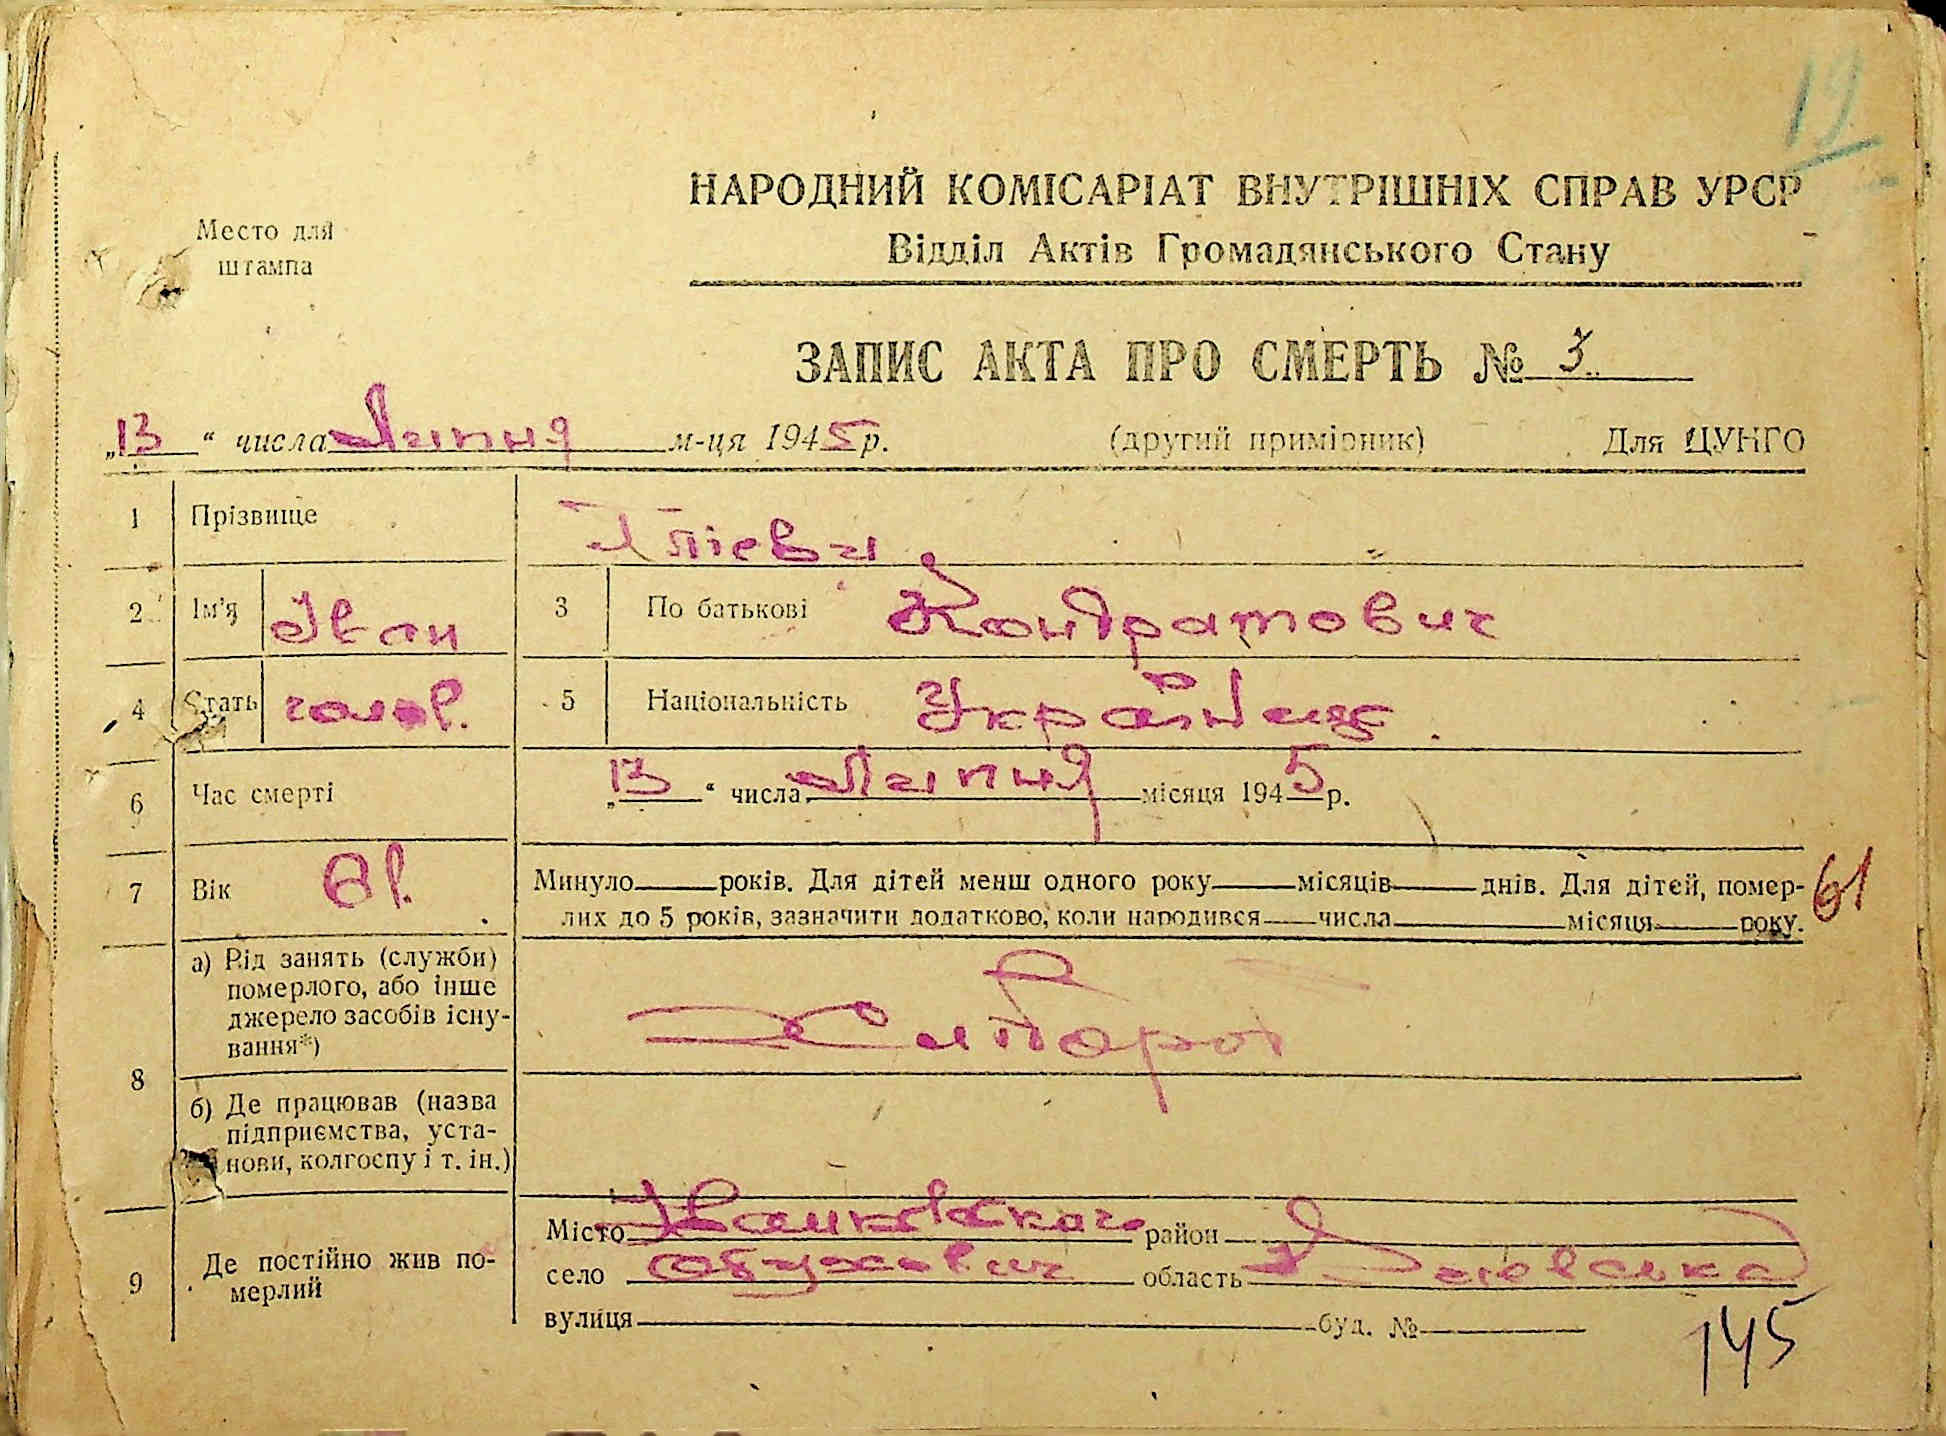 19
НАРОДНИЙ КОМІСАРІАТ ВНУТРІШНІХ СПРАВ УРСР
Место для штампа
Відділ Актів Громадянського Стану
ЗАПИС АКТА ПРО СМЕРТЬ № 3
„13“ числа Липня м-ця 1945 р. (другий примірник) Для ЦУНГО
1 Прізвище
2 Ім'я Іван 3 По батькові Кондратович
4 Стать голов. 5 Національність Українець
6 Час смерті „13“ числа Липня місяця 1945 р.
7 Вік 61. Минуло років. Для дітей менш одного року місяців днів. Для дітей, помер-
лих до 5 років, зазначити додатково, коли народився числа місяця року. 61
8 а) Рід занять (служби) померлого, або інше джерело засобів існу-вання*) Хлібороб
б) Де працював (назва підприємства, уста-нови, колгоспу і т. ін.)
9 Де постійно жив по-мерлий
Місто Іванківського район
село Обуховичі область Київська
вулиця буд. №
145